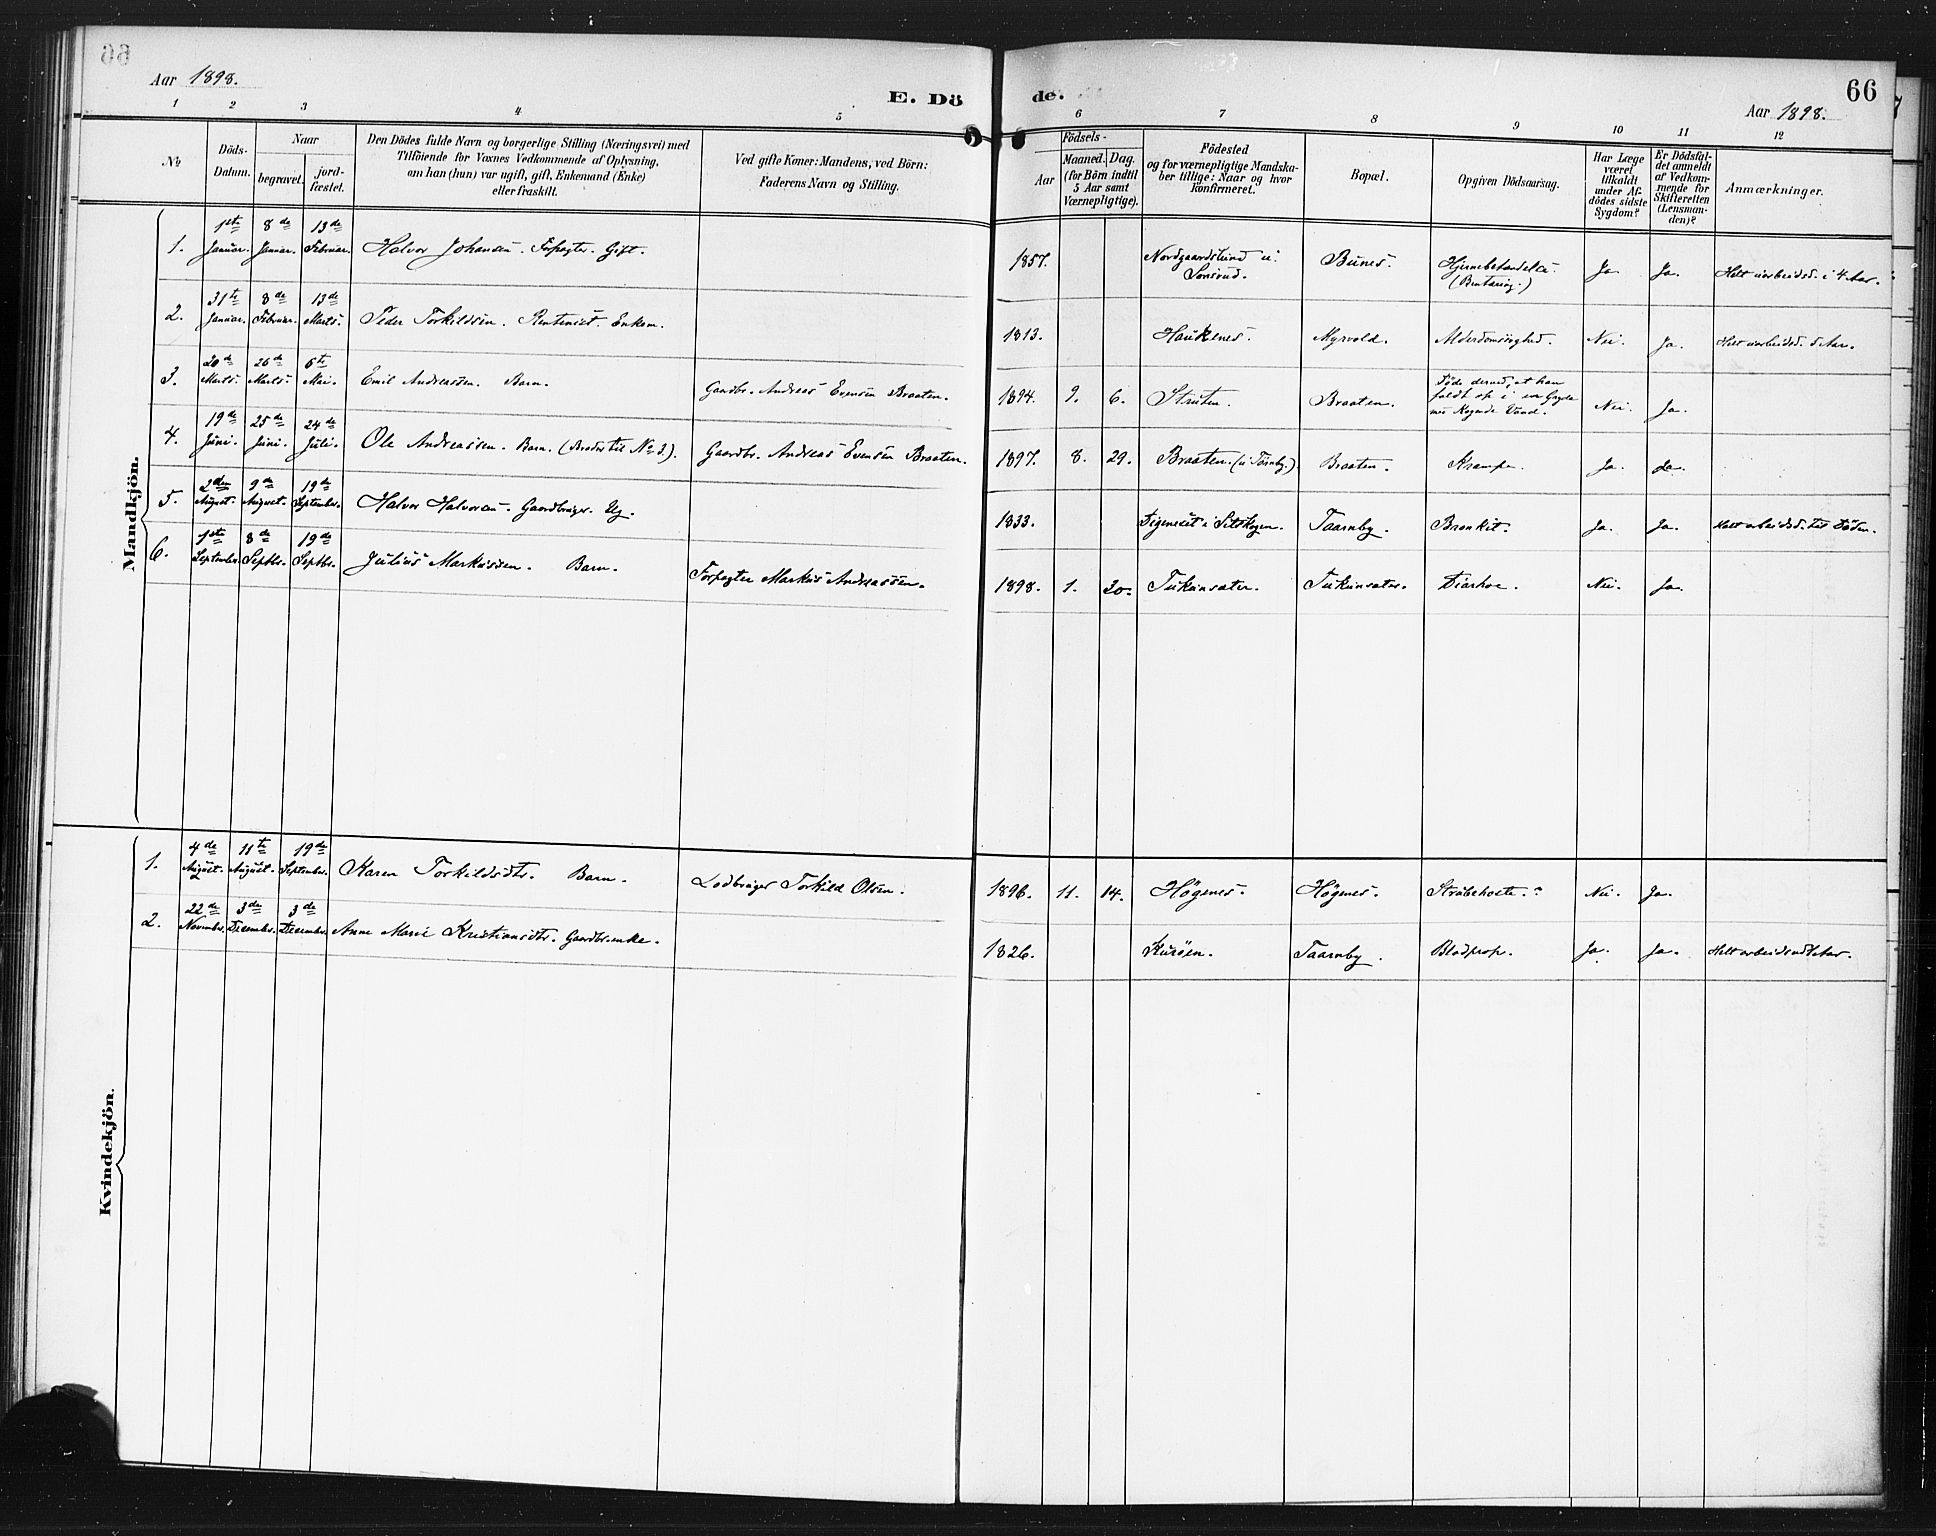 66
Aar 1898.
E. Dö
1 2 3 4 5
№
Döds-
Datum.
Naar
begravet.
jord-
fæstet.
Den Dödes fulde Navn og borgerlige Stilling (Næringsvei) med
Tilföiende for Voxnes Vedkommende af Oplysning,
om han (hun) var ugift, gift, Enkemand (Enke)
eller fraskilt.
Ved gifte Koner: Mandens, ved Börn:
Faderens Navn og Stilling.
Mandkjön.
1. 1ste Januar. 8de Januar. 13de Februar. Halvor Johansen. Forpagter. Gift.
2. 31te Januar. 8de Februar. 13de Marts. Peder Torkildsen. Rentenist. Enkem.
3. 20de Marts. 26de Marts. 6te Mai. Emil Andreassen. Barn. Gaardbr. Andreas Evensen Braaten.
4. 19de Juni. 25de Juni. 24de Juli. Ole Andreassen. Barn. (Broder til No 3.). Gaardbr. Andreas Evensen Braaten.
5. 2den August. 9de August. 19de September. Halvor Halvorsen. Gaardbruger. Ug.
6. 1ste September. 8de Septbr. 19de Septbr. Julius Markussen. Barn. Forpagter Markus Andreassen.
Kvindekjön.
1. 4de August. 11te August. 19de September. Karen Torkildsdtr. Barn. Lodbruger Torkild Olsen.
2. 22de November. 3de December. 3de December. Anne Marie Kristiansdtr. Gaardbr.enke.
66
de.
Aar 1898.
6 7 8 9 10 11 12
Aar
Födsels-
Maaned. Dag.
(for Börn indtil
5 Aar samt
Værnepligtige).
Födested
og for værnepligtige Mandska-
ber tillige: Naar og hvor
Konfirmeret.
Bopæl.
Opgiven Dödsaarsag.
Har Læge
været
tilkaldt
under Af-
dödes sidste
Sygdom?
Er Dödsfal-
det anmeldt
af Vedkom-
mende for
Skifteretten
(Lensman-
den)?
Anmærkninger.
1857. Nordgaardslund u. Bunes. (Ja. Ja. Helt uarbeidsd. i 4 Aar.
1813. Haukenes. Myrvold. Alderdomssvaghed. Nei. Ja. Helt uarbeidsd. 5 Aar.
1894. 9. 6. Struten. Braaten. Döde derved, at han
faldt op i en Gryde
med Kogende Vand. Nei. Ja.
1897. 8. 29. Braaten. (u. Taarnby.) Braaten. Krampe. Ja. Ja.
1833. Digeneset i Setskogen. Taarnby. Bronkit. Ja. Ja. Helt arbeidsd. til Döden.
1898. 1. 20. Tukunsæter. Tukunsæter. Diarhoe. Nei. Ja.
1896. 11. 14. Högenes. Högenes. Strubehoste.? Nei. Ja.
1826. Kuröen. Taarnby. Blodprop. Ja. Ja.